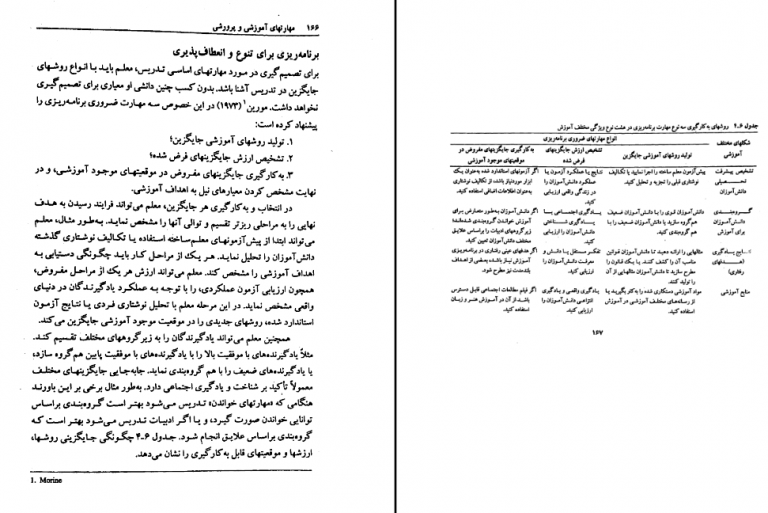 ۱۶۶ مهارتهای آموزشی و پرورشی
برنامه‌ریزی برای تنوع و انعطاف‌پذیری
برای تصمیم‌گیری در مورد مهارتهای اساسی تدریس، معلم باید با انواع روشهای
جایگزین در تدریس آشنا باشد. بدون کسب چنین دانشی او معیاری برای تصمیم‌گیری
نخواهد داشت. مورین۱ (۱۹۷۳) در این خصوص سه مهارت ضروری برنامه‌ریزی را
پیشنهاد کرده است:
۱. تولید روشهای آموزشی جایگزین؛
۲. تشخیص ارزش جایگزینهای فرض شده؛
۳. به‌کارگیری جایگزینهای مفروض در موقعیتهای موجود آموزشی، و در
نهایت مشخص کردن معیارهای نیل به اهداف آموزشی.
در انتخاب و به‌کارگیری هر جایگزین، معلم می‌تواند فرایند رسیدن به هدف
نهایی را به مراحلی ریزتر تقسیم و توالی آنها را مشخص نماید. به‌طور مثال، معلم
می‌تواند ابتدا از پیش‌آزمونهای معلم‌ساخته استفاده یا تکالیف نوشتاری گذشته
دانش‌آموزان را تحلیل نماید. هر یک از مراحل کار باید چگونگی دستیابی به
اهداف آموزشی را مشخص کند. معلم می‌تواند ارزش هر یک از مراحل مفروض،
همچون ارزیابی آزمون عملکردی، را با توجه به عملکرد یادگیرندگان در دنیای
واقعی مشخص نماید. در این مرحله معلم با تحلیل نوشتاری فردی یا نتایج آزمون
استاندارد شده، روشهای جدیدی را در موقعیت موجود آموزشی جایگزین می‌کند.
همچنین معلم می‌تواند یادگیرندگان را به زیرگروههای مختلف تقسیم کند.
مثلاً یادگیرنده‌های با موفقیت بالا را با یادگیرنده‌های با موفقیت پایین هم‌گروه سازد،
یا یادگیرنده‌های ضعیف را با هم گروه‌بندی نماید. جابه‌جایی جایگزینهای مختلف
معمولاً تأکید بر شناخت و یادگیری اجتماعی دارد. به‌طور مثال برخی بر این باورند
هنگامی که «مهارتهای خواندن» تدریس می‌شود بهتر است گروه‌بندی براساس
توانایی خواندن صورت گیرد، و یا اگر ادبیات تدریس می‌شود بهتر است که
گروه‌بندی براساس علایق انجام شود. جدول ۶-۴ چگونگی جایگزینی روشها،
ارزشها و موقعیتهای قابل به‌کارگیری را نشان می‌دهد.
1. Morine
جدول ۶.۴ روشهای به‌کارگیری سه نوع مهارت برنامه‌ریزی در هشت نوع ویژگی مختلف آموزش
انواع مهارتهای ضروری برنامه‌ریزی
شکلهای مختلف آموزشی
تولید روشهای آموزشی جایگزین
تشخیص ارزش جایگزینهای فرض شده
به‌کارگیری جایگزینهای مفروض در موقعیتهای موجود آموزشی
تشخیص پیشرفت تحصیلی دانش‌آموزان
پیش‌آزمون معلم ساخته را اجرا نمایید یا تکالیف نوشتاری قبلی را تجزیه و تحلیل کنید.
نتایج یا عملکرد آزمون یا عملکرد دانش‌آموزان را در زندگی واقعی ارزیابی کنید.
اگر آزمونهای استاندارد شده به‌عنوان یک ابزار موردنیاز باشد، از تکالیف نوشتاری به‌عنوان اطلاعات اضافی استفاده کنید.
گروه‌بندی دانش‌آموزان برای آموزش
دانش‌آموزان قوی را با دانش‌آموزان ضعیف هم‌گروه سازید یا دانش‌آموزان ضعیف را با هم گروه‌بندی کنید.
یادگیری اجتماعی یا یادگیری شناختی دانش‌آموزان را ارزیابی کنید.
اگر دانش‌آموزان به‌طور متعارض برای آموزش خواندن گروه‌بندی شده‌اند؛ زیرگروههای ادبیات را براساس علایق مختلف دانش‌آموزان تعیین کنید.
نتایج یادگیری (هدفهای رفتاری)
مثالها را ارائه دهید تا دانش‌آموزان قوانین مناسب آن را کشف کنند. یا یک قانون را مطرح سازید تا دانش‌آموزان مثالهایی از آن را تولید کنند.
تفکر مستقل یا دانش و معرفت دانش‌آموزان را ارزیابی کنید.
اگر هدفهای عینی رفتاری در برنامه‌ریزی آموزش نیاز باشد، بعضی از اهداف بلندمدت نیز مطرح شود.
منابع آموزشی
مواد آموزشی دستکاری شده را به‌کار بگیرید یا از رسانه‌های مختلف آموزشی در آموزش استفاده کنید.
یادگیری واقعی و یادگیری انتزاعی دانش‌آموزان را ارزیابی کنید.
اگر فیلم مطالعات اجتماعی قابل دسترس باشد، از آن در آموزش هنر و زبان استفاده کنید.
۱۶۷